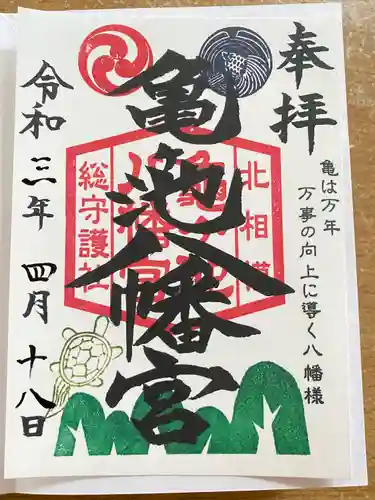 奉拝
亀は万年
万事の向上に導く八幡様
北相模
総守護社
亀ヶ池
八幡宮
亀池八幡宮
令和三年 四月 十八日